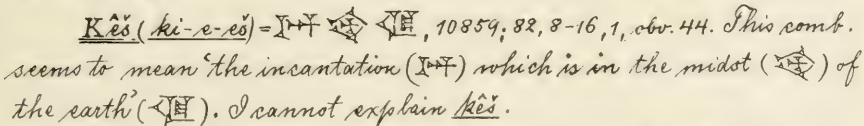 Kêš (ki-e-eš) = 𒋞 , 10859; 82, 8-16, 1, obv. 44. This comb.
seems to mean 'the incantation () which is in the midst () of
the earth' (). I cannot explain kêš.